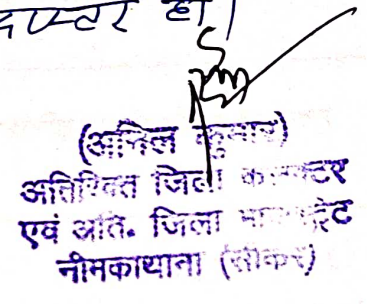 दफ्तर हो।
(अनिल कुमार)
अतिरिक्त जिला कलक्टर
एवं अति. जिला मजिस्ट्रेट
नीमकाथाना (सीकर)